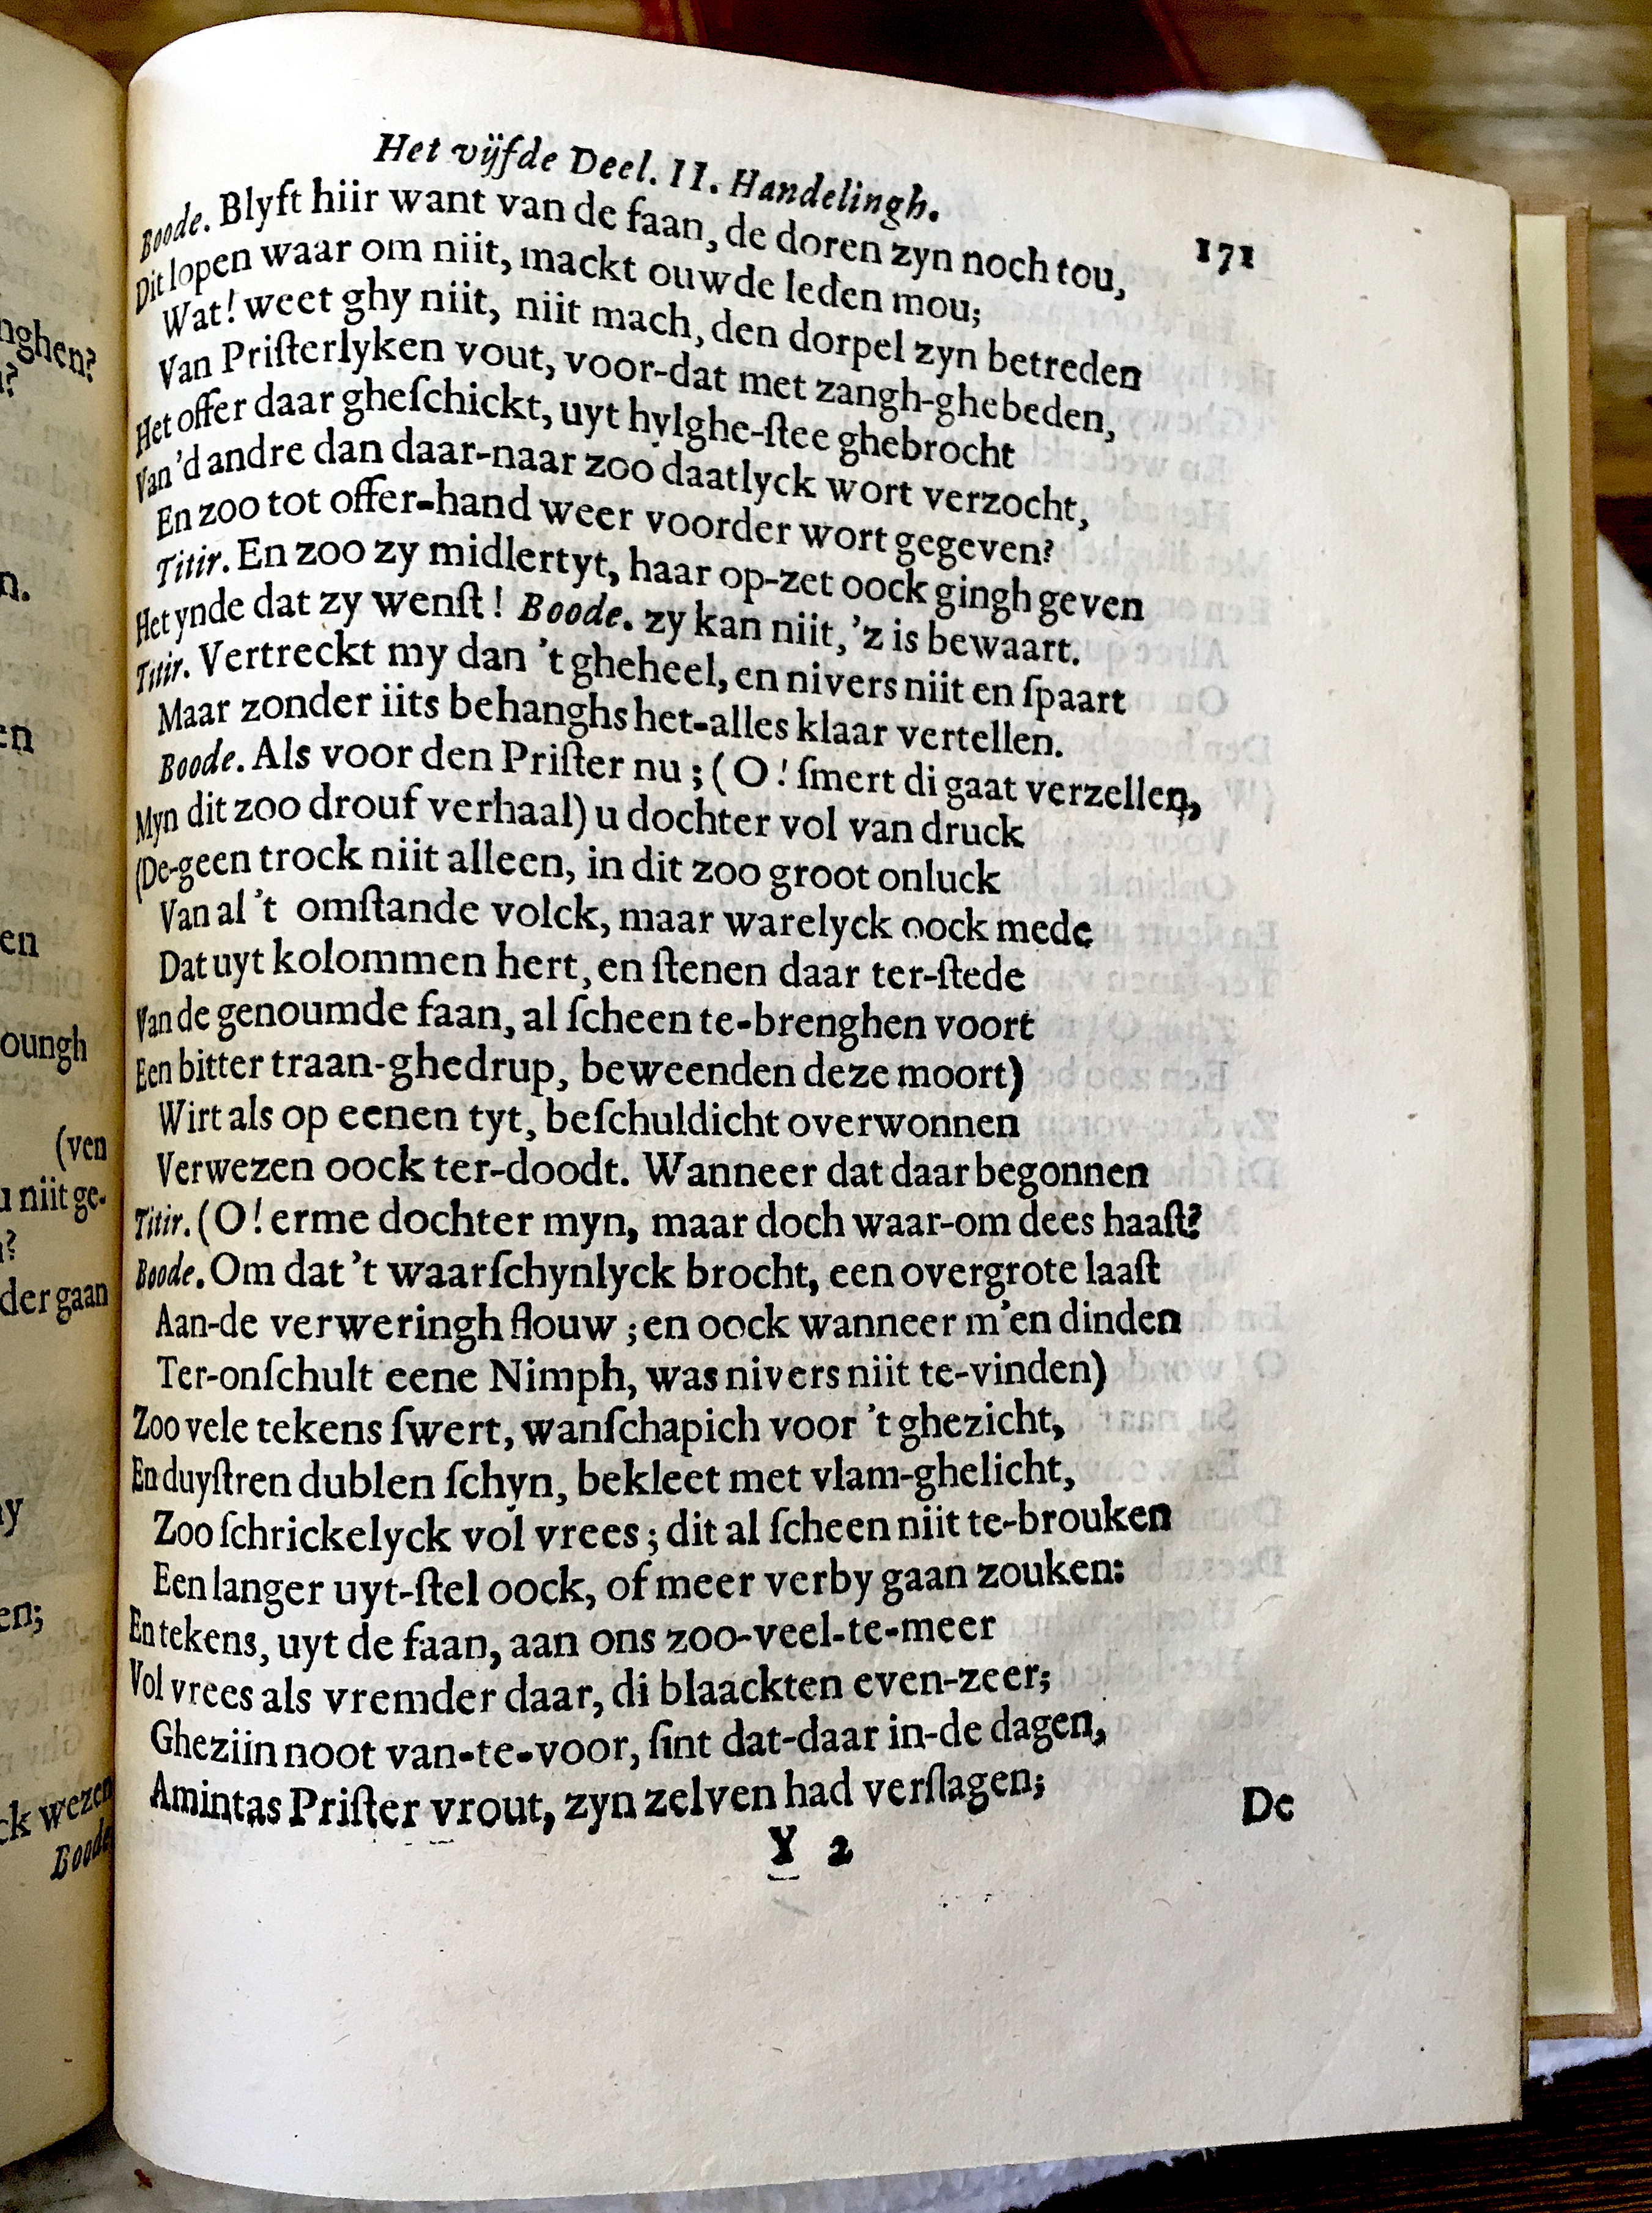 nghen?
n.
en
en
oungh
(ven
niit ge-
der gaan
en;
ck wezen
Boode
Het vijfde Deel. II. Handelingh.
171
Boode. Blyft hiir want van de faan, de doren zyn noch tou,
Dit lopen waar om niit, mackt ouwde leden mou;
Wat! weet ghy niit, niit mach, den dorpel zyn betreden
Van Priſterlyken vout, voor-dat met zangh-ghebeden,
Het offer daar gheſchickt, uyt hylghe-ſtee ghebrocht
Van 'd andre dan daar-naar zoo daatlyck wort verzocht,
En zoo tot offer-hand weer voorder wort gegeven?
Titir. En zoo zy midlertyt, haar op-zet oock gingh geven
Het ynde dat zy wenſt! Boode. zy kan niit, 'z is bewaart.
Titir. Vertreckt my dan 't gheheel, en nivers niit en ſpaart
Maar zonder iits behanghs het-alles klaar vertellen.
Boode. Als voor den Priſter nu; (O! ſmert di gaat verzellen,
Myn dit zoo drouf verhaal) u dochter vol van druck
(De-geen trock niit alleen, in dit zoo groot onluck
Van al 't omſtande volck, maar warelyck oock mede
Dat uyt kolommen hert, en ſtenen daar ter-ſtede
Van de genoumde faan, al ſcheen te-brenghen voort
Een bitter traan-ghedrup, beweenden deze moort)
Wirt als op eenen tyt, beſchuldicht overwonnen
Verwezen oock ter-doodt. Wanneer dat daar begonnen
Titir. (O! erme dochter myn, maar doch waar-om dees haaſt?
Boode. Om dat 't waarſchynlyck brocht, een overgrote laaſt
Aan-de verweringh flouw; en oock wanneer m'en dinden
Ter-onſchult eene Nimph, was nivers niit te-vinden)
Zoo vele tekens ſwert, wanſchapich voor 't ghezicht,
En duyſtren dublen ſchyn, bekleet met vlam-ghelicht,
Zoo ſchrickelyck vol vrees; dit al ſcheen niit te-brouken
Een langer uyt-ſtel oock, of meer verby gaan zouken:
En tekens, uyt de faan, aan ons zoo-veel-te-meer
Vol vrees als vremder daar, di blaackten even-zeer;
Gheziin noot van-te-voor, ſint dat-daar in-de dagen,
Amintas Priſter vrout, zyn zelven had verſlagen;
Y 2
De